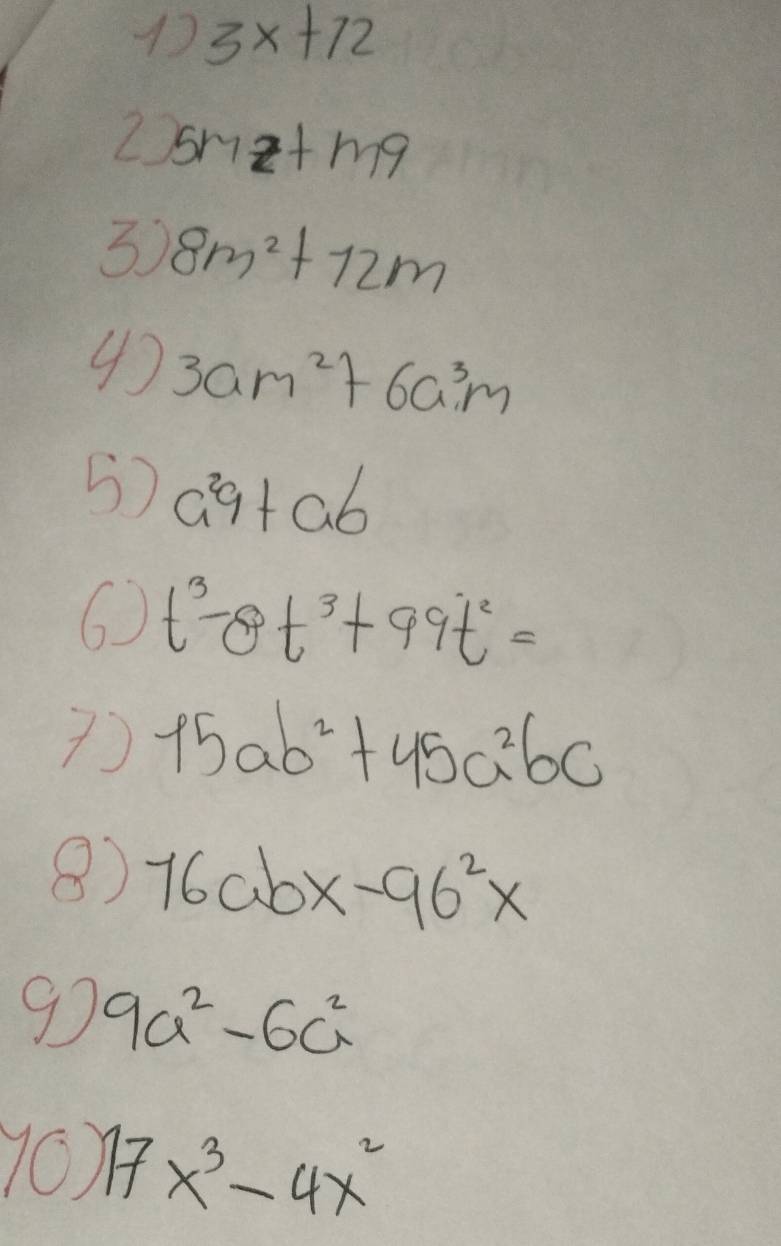 1) 3x+12
2) 5mz+m9
3) 8m²+12m
4) 3am²+6a³m
5) a²9+ab
6) t³-8t³+99t²=
7) 15ab²+45a²bc
8) 16abx-96²x
9) 9a²-6a²
10) 17x³-4x²